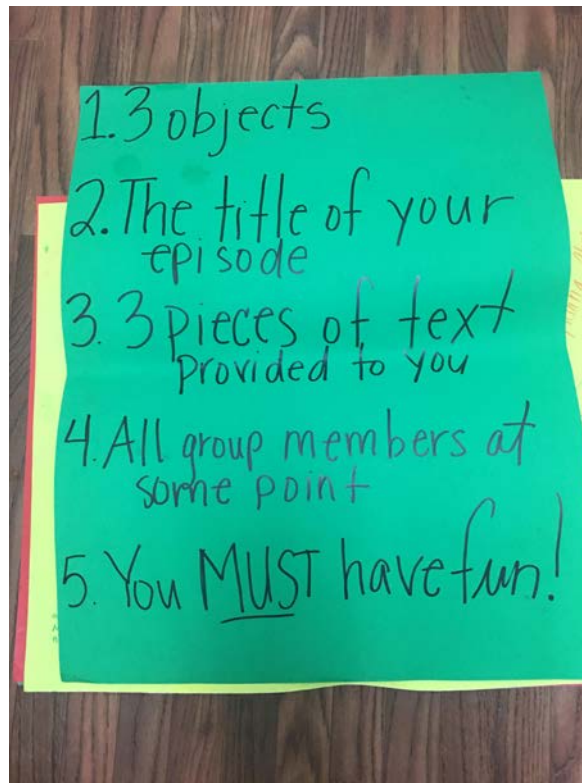 1. 3 objects
2. The title of your
episode
3. 3 pieces of text
provided to you
4. All group members at
some point
5. You MUST have fun!